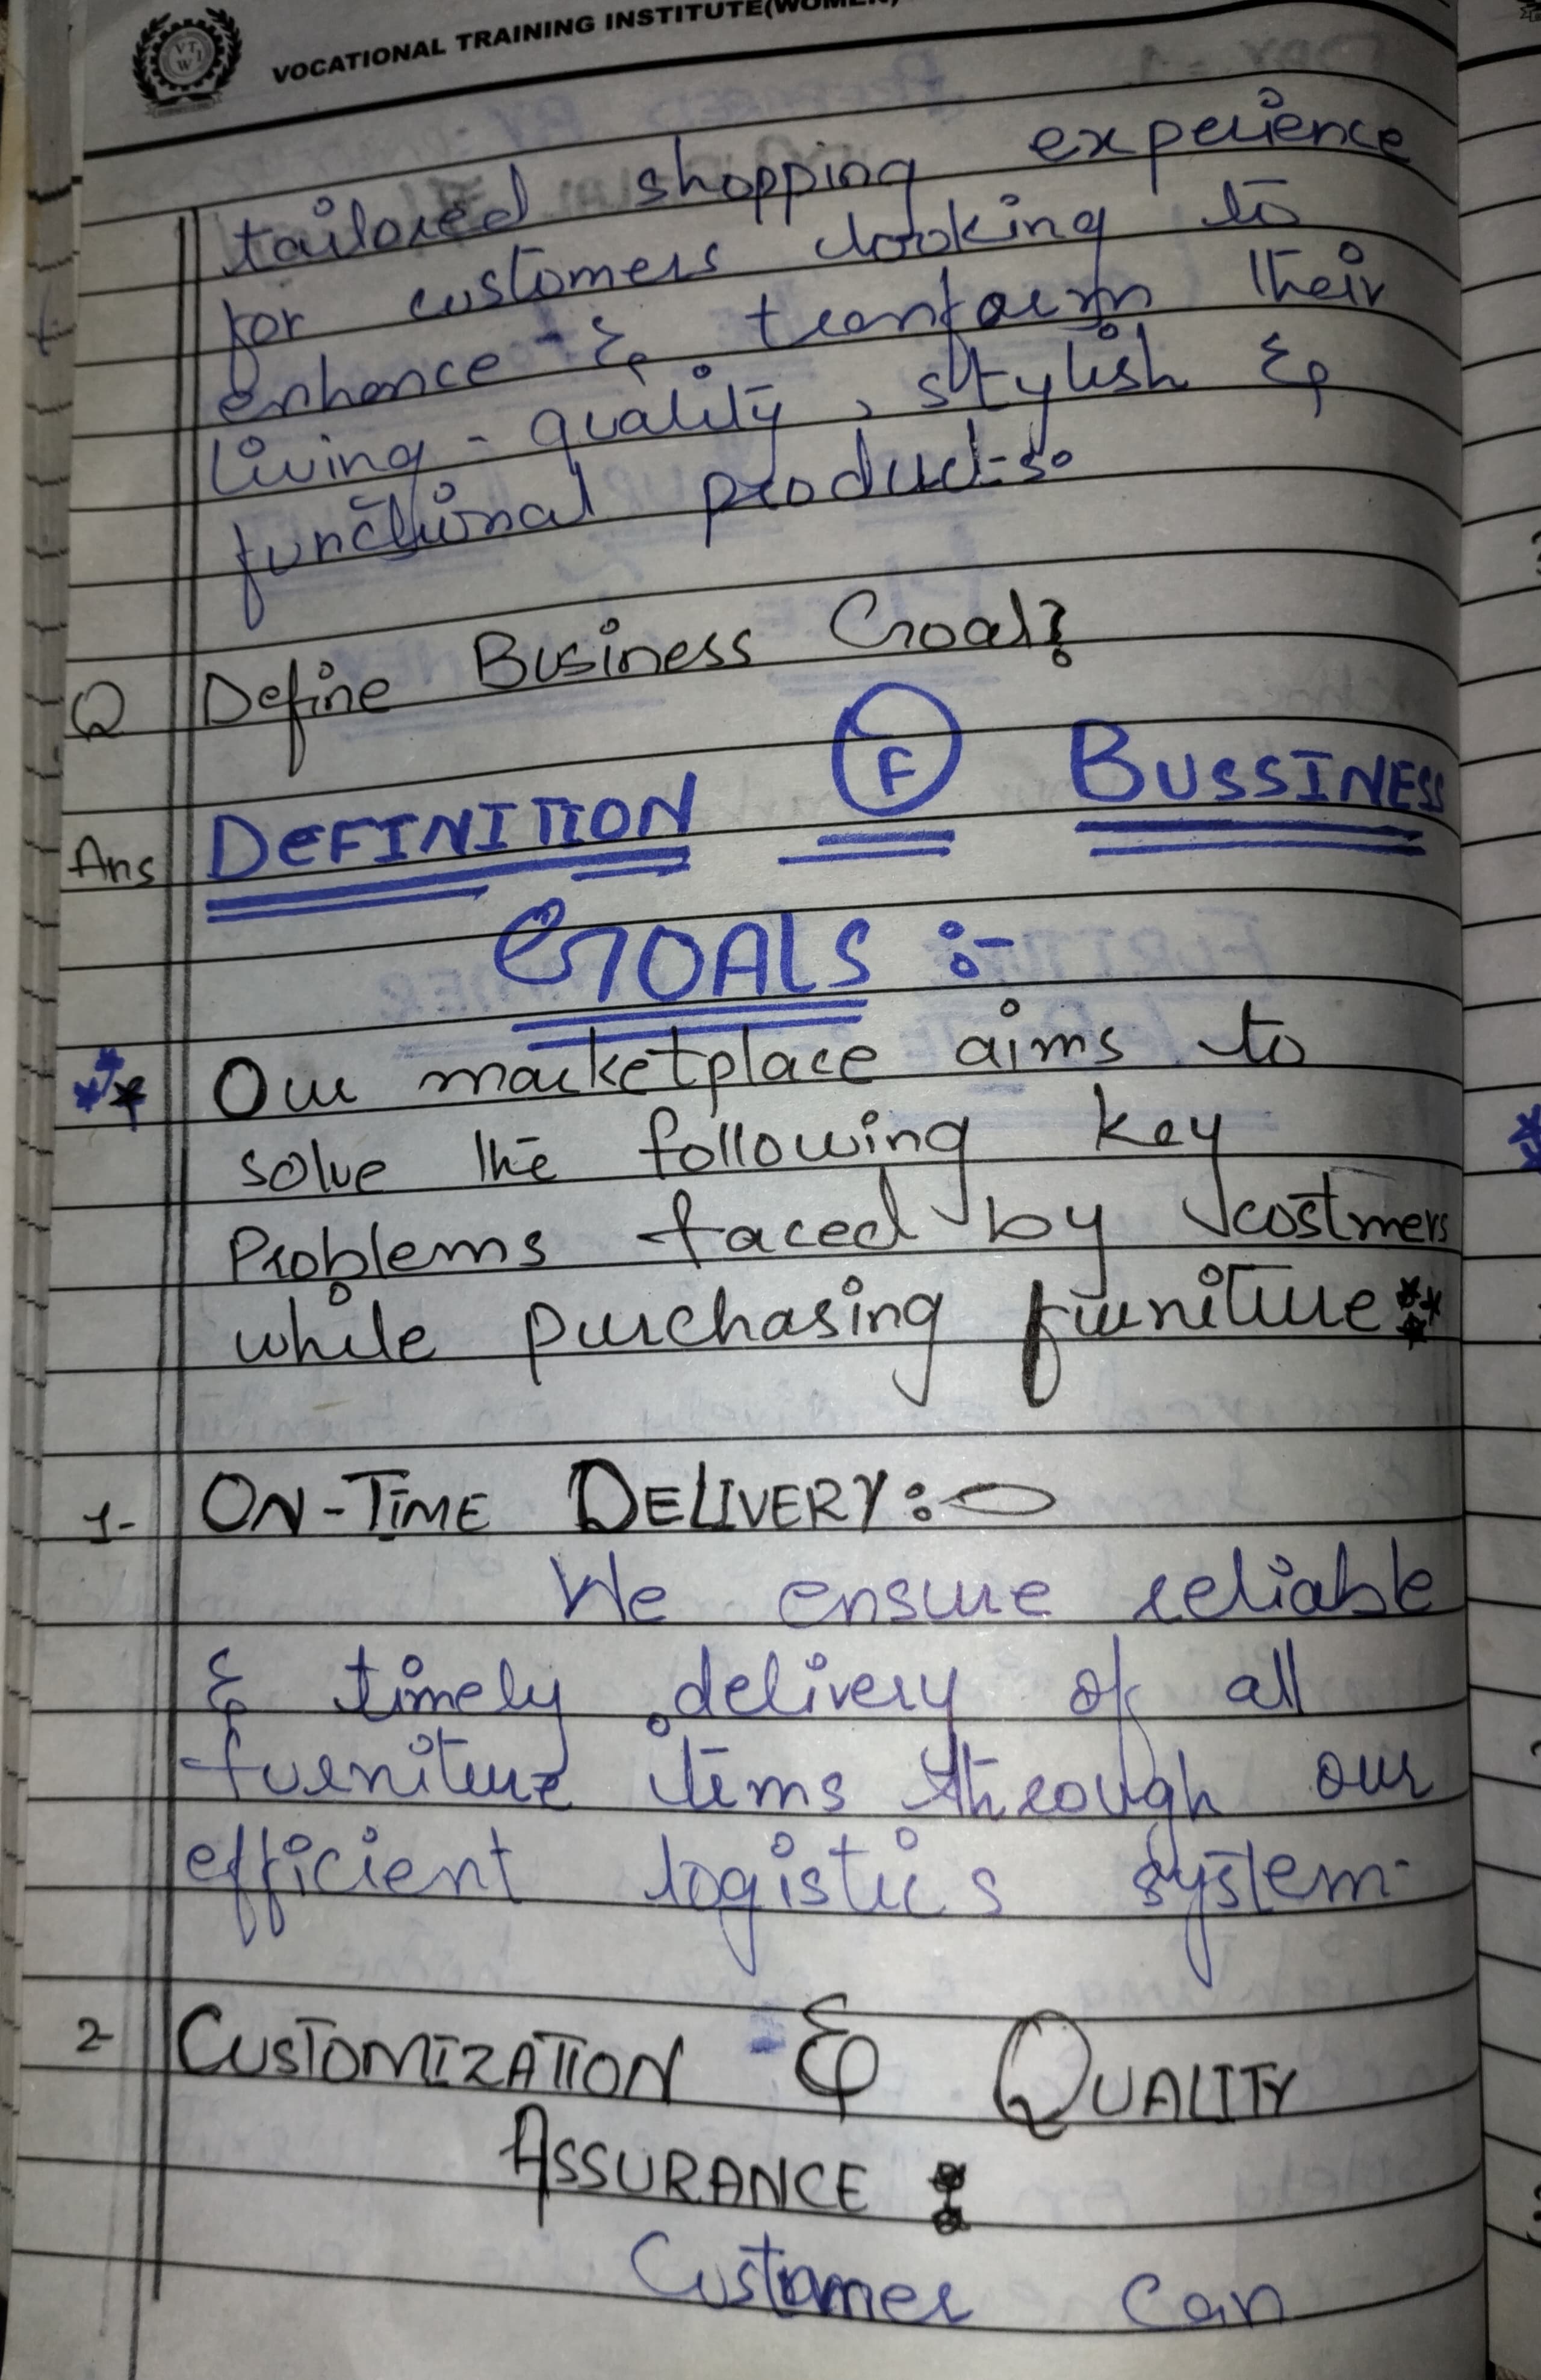 VOCATIONAL TRAINING INSTITUTE(WOMEN)
tailored shopping experience
for customers looking to
enhance & tranform their
living - quality, stylish &
functional products.
Q Define Business Goal?
Ans DEFINITION OF BUSSINESS
GOALS :-
Our marketplace aims to
solve the following key
Problems faced by costmers
while purchasing furniture:
1- ON-TIME DELIVERY:
We ensure reliable
& timely delivery of all
furniture items through our
efficient logistics system.
2- CUSTOMIZATION & QUALITY
ASSURANCE :
Customer can